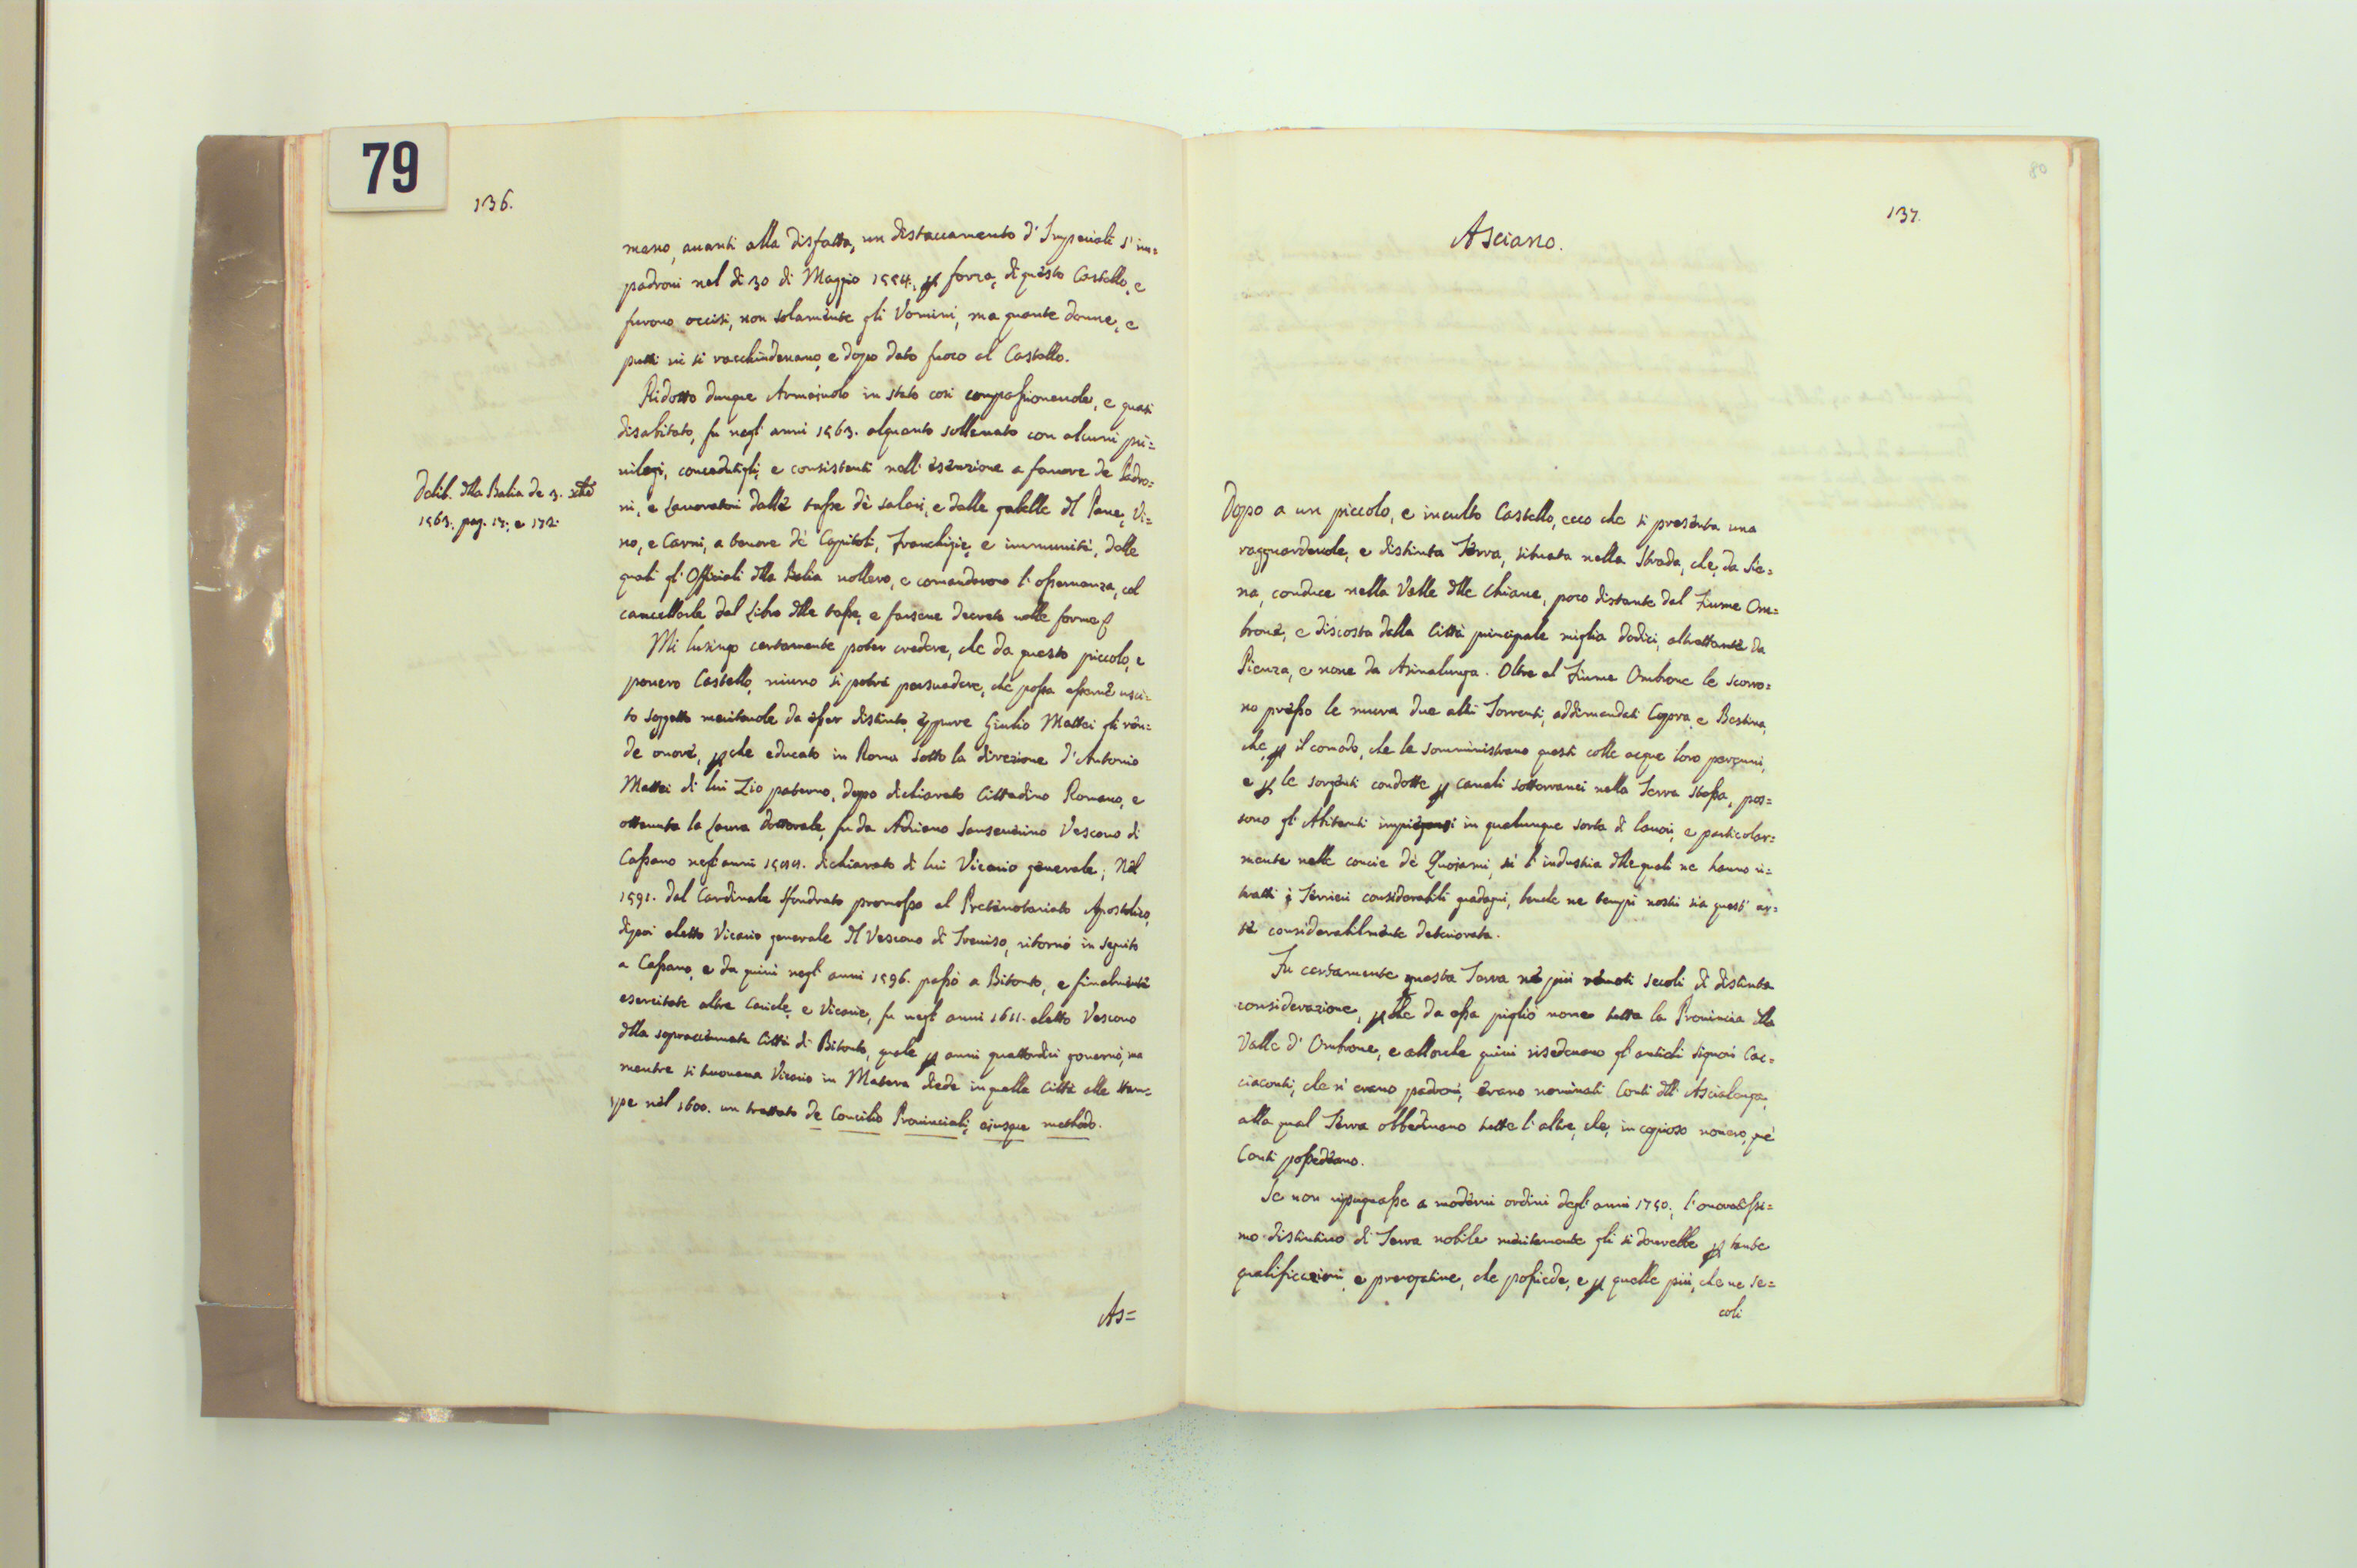 79
136.
mano, auanti alla disfatta, un distaccamento d'Imperiali s'im=
padroni nel dì 30 di Maggio 1554., forza, di questo Castello, e
furono occisi, non solamente gli Vomini, ma quante donne, e
putti ui si racchiudeuano, e dopo dato fuoco al Castello.
Ridotto dunque Armaiuolo in stato così compassioneuole, e quasi
disabitato, fu negl'anni 1563. alquanto solleuato con alcuni pri=
uilegi, concedutigli, e consistenti nell'esenzione a fauore de Padro=
ni, e Lauoratori dalle tasse dè salari, e dalle gabelle dl Pane, Vi=
no, e Carni, a tenore dè Capitoli, Franchigie, e immunità, delle
quali gl'Officiali dlla Balia uollero, e comandarono l'osseruanza, col
cancellarle dal Libro dlle tasse, e farsene decreto nelle forme
Delib. dlla Balia de 3.
1563. pag. 17. e 172.
Mi lusingo certamente poter credere, che da questo piccolo, e
pouero Castello, niuno si potrà persuadere, che possa esserne usci=
to soggetto meriteuole da esser distinto, eppure Giulio Mattei gli rèn=
de onore, che educato in Roma sotto la direzione d'Antonio
Mattei di lui Zio paterno, dopo dichiarato Cittadino Romano, e
ottenuta la Laura dottorale, fu da Adriano Sanseuerino Vescouo di
Cassano negl'anni dichiarato di lui Vicario generale; Nel
1591. dal Cardinale Sfondrato promosso al Protonotariato Apostolico,
dipoi eletto Vicario generale dl Vescouo di Treuiso, ritornò in seguito
a Cassano, e da quiui negl'anni 1596. passò a Bitonto, e finalmente
esercitate altre Cariche, e Vicarie, fu negl'anni 1611. eletto Vescouo
dlla sopraccennata Città di Bitonto, quale anni quattordici gouernò, ma
mentre si truouaua Vicario in Matera diede in quella Città alle stam=
pe nel 1600. un trattato de Concilio Prouinciali, eiusque methodo.
As=
80
137.
Asciano.
Dopo a un piccolo, e inculto Castello, ecco che si presenta una
ragguardeuole, e distinta Terra, situata nella Strada, che, da Sie=
na, conduce nella Valle dlle Chiane, poco distante dal Fiume Om=
brone, e discosta dalla Città principale miglia dodici, altrettante da
Pienza, e noue da Asinalunga. Oltre al Fiume Ombrone le scorro=
no presso le mura due altri Torrenti, addimandati Copra, e Bestina,
che, il comodo, che le somministrano questi colle acque loro perenni,
e le sorgenti condotte canali sotterranei nella Terra stessa, pos=
sono gl'Abitanti impiegarsi in qualunque sorta di lauori, e particolar=
mente nelle concie dè Quoiami, l'industria dlle quali ne hanno ri=
tratti i Terrieri considerabili guadagni, benche ne tempi nostri sia quest'ar=
te considerabilmente deteriorata.
Fu certamente questa Terra nè più remoti secoli di distinta
considerazione, che da essa pigliò nome tutta la Prouincia dlla
Valle d'Ombrone, e allorche quiui risedeuano gl'antichi Signori Cac=
ciaconti, che n'erano padroni, erano nominati Conti dll'Ascialenga,
alla qual Terra obbediuano tutte l'altre, che, in copioso nomero, què
Conti possedeano.
Se non ripugnasse a moderni ordini degl'anni 1750., l'onoratissi=
mo distintiuo di Terra nobile meritamente gli si dourebbe tante
qualificazioni, e prerogatiue, che possiede, e quelle più, che ne se=
coli